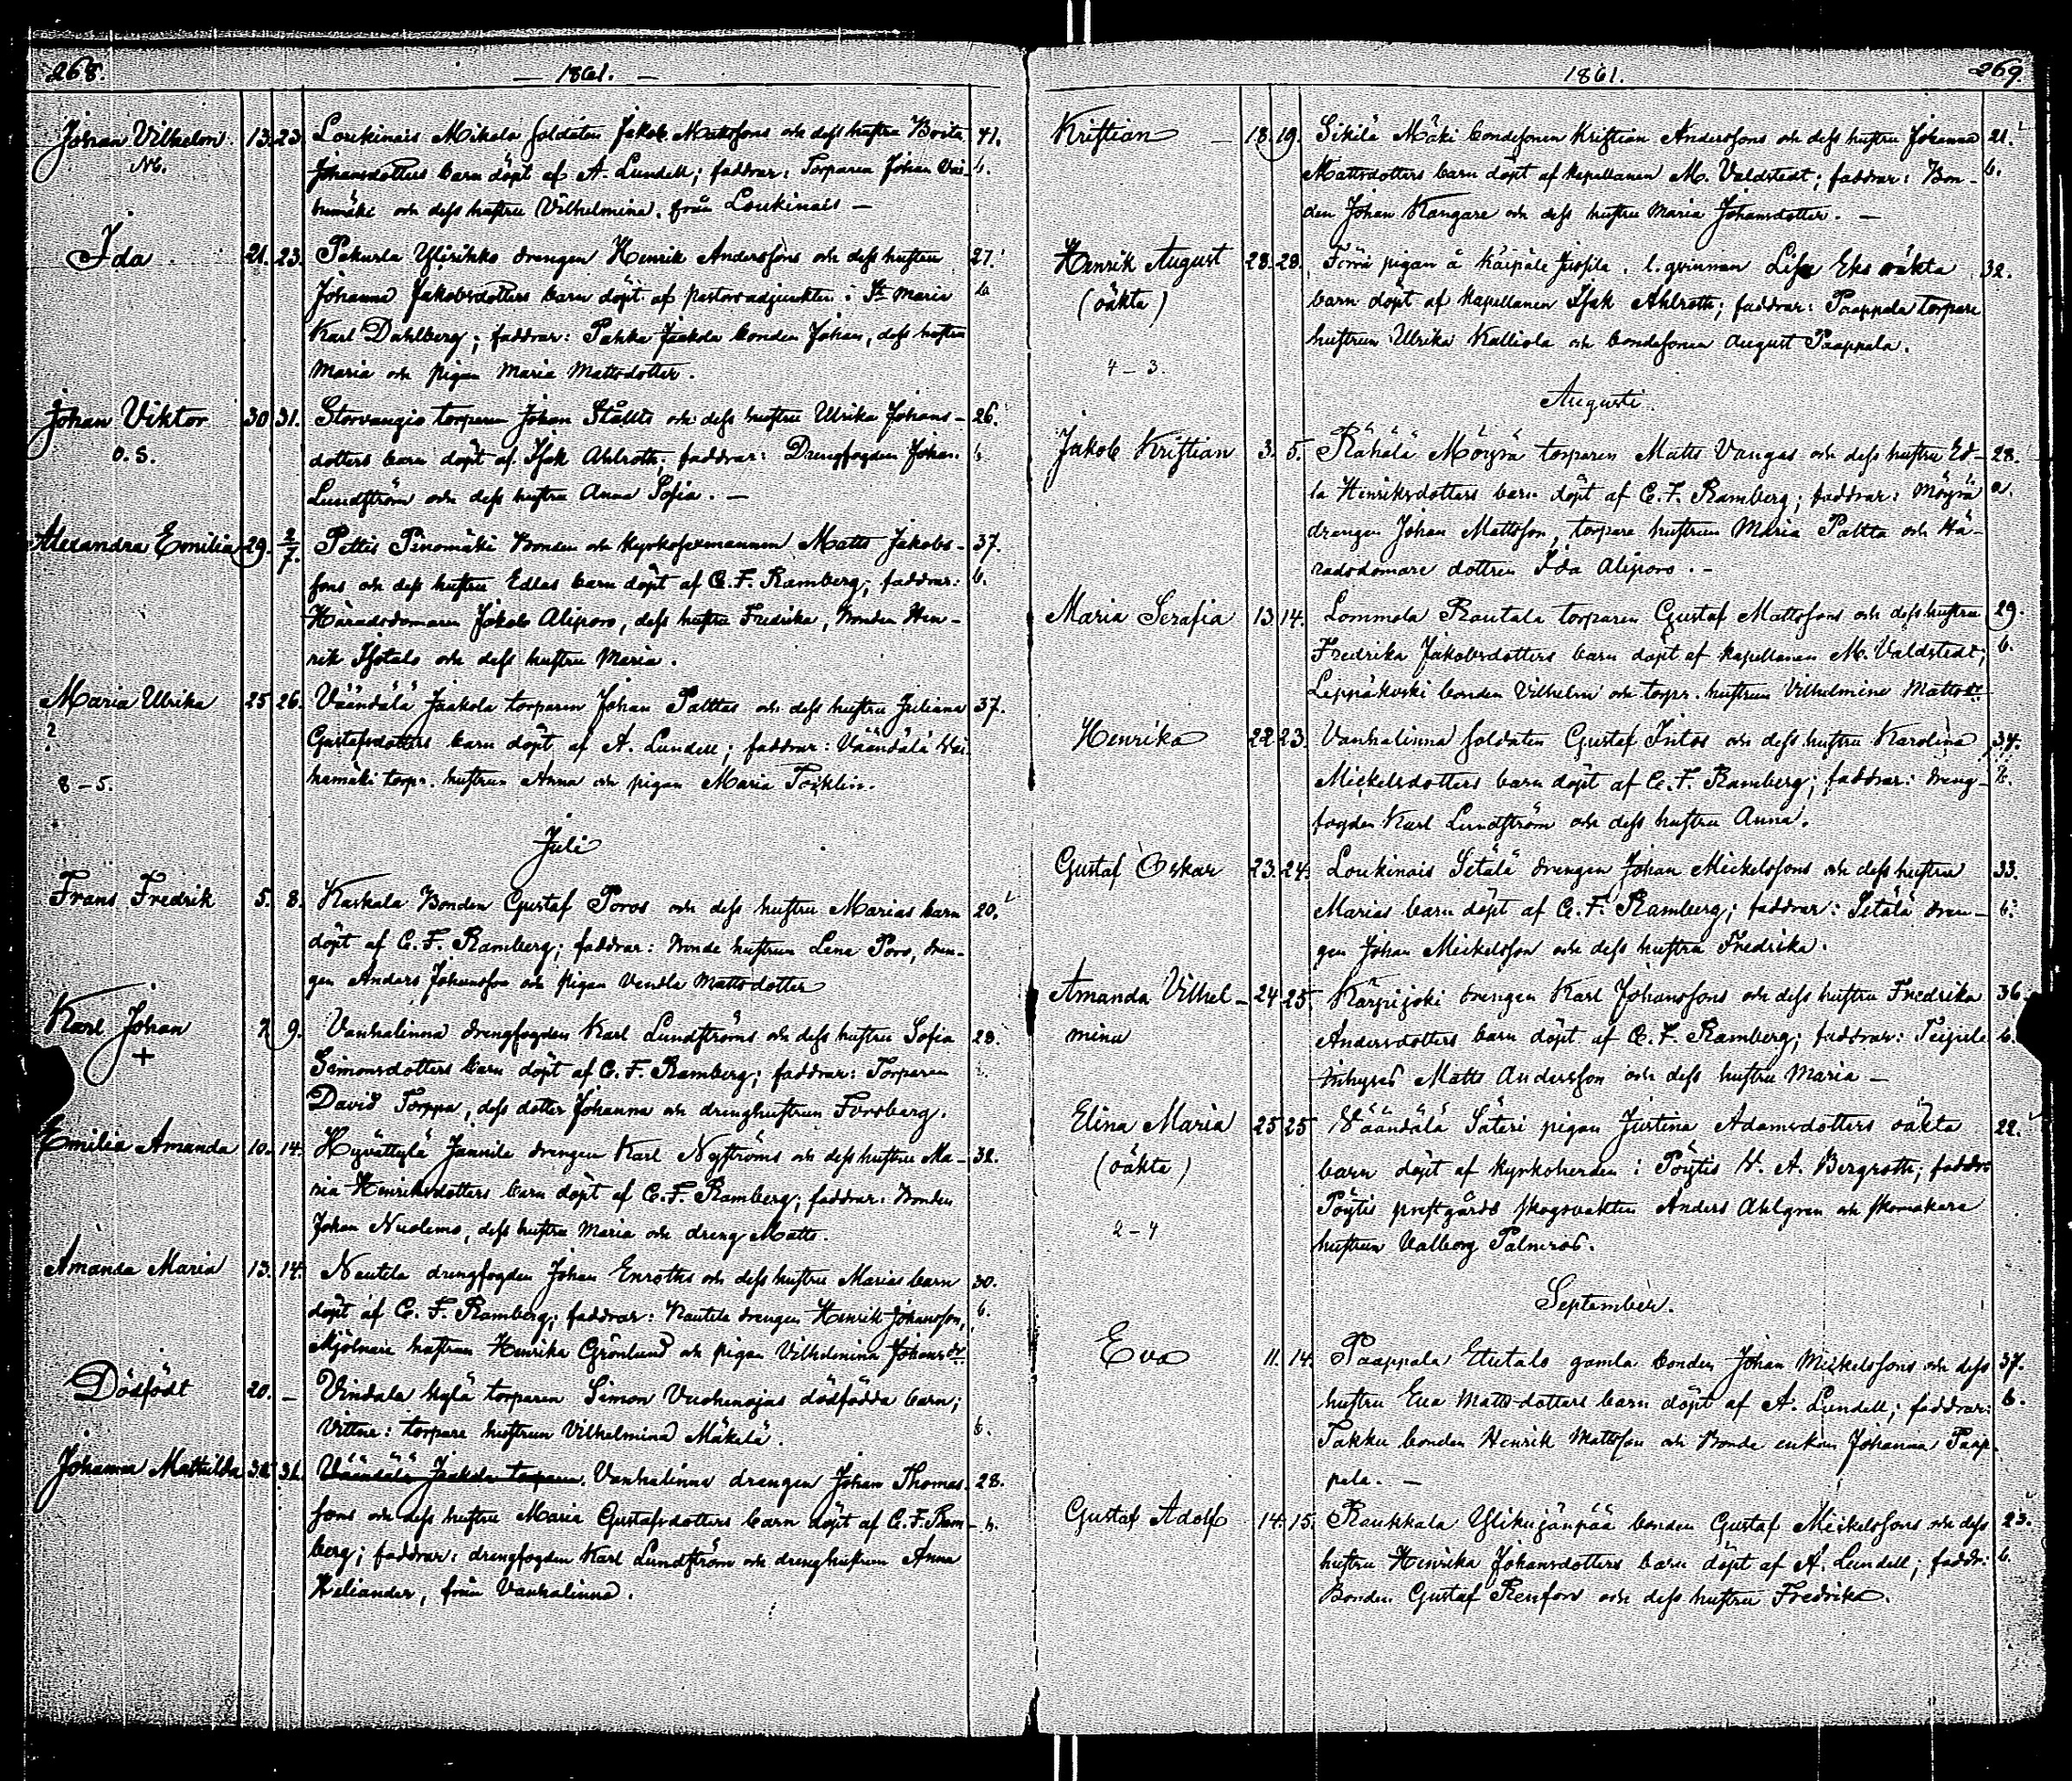 268.
— 1861. —
Johan Vilhelm 13. 23. Loukinais Mikola soldaten Jakob Mattssons och dess hustru Brita 41.
Nb. Johansdotters barn döpt af A. Lundell; faddrar: Torparen Johan b.
och dess hustru Vilhelmina från Loukinais —
Ida 21. 23. Pakurla Ylirikko drengen Henrik Anderssons och dess hustru 27.
Johanna Jakobsdotters barn döpt af pastorsadjunkten i St Marie b.
Karl Dahlberg; faddrar: Pahka Jaakola bonden Johan, dess hustru
Maria och pigan Maria Mattsdotter.
Johan Viktor 30. 31. Storvangio torparen Johan Ståhls och dess hustru Ulrika Johans- 26.
O. S. dotters barn döpt af Isak Ahlroth; faddrar: Drengfogden Johan b.
Lundström och dess hustru Anna Sofia. —
Alexandra Emilia 29. 2/7. Pettis Pinomäki Bonden och kyrkosexmannen Matts Jakobs- 37.
sons och dess hustru Edlas barn döpt af C. F. Ramberg; faddrar: b.
Häradsdomaren Jakob Aliporo, dess hustru Fredrika, Bonden Hen-
rik Isotalo och dess hustru Maria.
Maria Ulrika 25. 26. Väändälä Jaakola torparen Johan Palttas och dess hustru Juliana 37.
? Gustafsdotters barn döpt af A. Lundell; faddrar: Väändälä
8 – 5. torpr. hustrun Anna och pigan Maria
Juli
Frans Fredrik 5. 8. Karkala Bonden Gustaf Poros och dess hustru Marias barn 20.
döpt af C. F. Ramberg; faddrar: Bonde hustrun Lena Poro, dren-
gen Anders Johansson och pigan Vendla Mattsdotter
Karl Johan 7. 9. Vanhalinna drengfogden Karl Lundströms och dess hustru Sofia 28.
+ Simonsdotters barn döpt af C. F. Ramberg; faddrar: Torparen
David Torppa, dess dotter Johanna och drenghustrun Forsberg.
Emilia Amanda 10. 14. Hyvättylä Jannila drengen Karl Nyströms och dess hustru Ma- 32.
ria Henriksdotters barn döpt af C. F. Ramberg; faddrar: Bonden
Johan Nuolemo, dess hustru Maria och dreng Matts.
Amanda Maria 13. 14. Nautela drengfogden Johan Enroths och dess hustru Marias barn 30.
döpt af C. F. Ramberg; faddrar: Nautela drengen Henrik Johansson, b.
Mjölnare hustrun Henrika Grönlund och pigan Vilhelmina Johansdr.
Dödfödt 20. — Vindala kylä torparen Simon Vuohenojas dödfödda barn;
Vittne: torpare hustrun Vilhelmina Mäkelä. b.
Johanna Mathilda 30. 31. Väändälä Jaakola torparen. Vanhalinna drengen Johan Thomas- 28.
sons och dess hustru Maria Gustafsdotters barn döpt af C. F. Ram- b.
berg; faddrar: drengfogden Karl Lundström och drenghustrun Anna
Heliander, från Vanhalinna.
1861.
269.
Kristian — 18. 19. Sikilä Mäki bondesonen Kristian Anderssons och dess hustru Johanna 21.
Mattsdotters barn döpt af kapellanen M. Valdstedt; faddrar: Bon- b.
den Johan Kangare och dess hustru Maria Johansdotter. —
Henrik August 28. 29. Förra pigan å Karpale l. qvinnan Lisa Eks oäkta 32.
(oäkta) barn döpt af kapellanen Isak Ahlroth; faddrar: Paappala torpare
hustrun Ulrika Kalliola och bondesonen August Paappala.
4 – 3.
Augusti
Jakob Kristian 3. 5. Rähälä Möyrä torparen Matts Vangas och dess hustru Ed- 28.
la Henriksdotters barn döpt af C. F. Ramberg; faddrar: Möyrä a.
drengen Johan Mattsson, torpare hustrun Maria Paltta och Hä-
radsdomare dottren Ida Aliporo. -
Maria Serafia 13. 14. Lommola Rautala torparen Gustaf Mattssons och dess hustru 29.
Fredrika Jakobsdotters barn döpt af kapellanen M. Valdstedt; b.
Leppäkoski bonden Vilhelm och torpr. hustrun Vilhelmina Mattsdr.
Henrika 22. 23. Vanhalinna soldaten Gustaf Intos och dess hustru Karolina 34.
Mickelsdotters barn döpt af C. F. Ramberg; faddrar: dreng-
fogden Karl Lundström och dess hustru Anna.
Gustaf Oskar 23. 24. Loukinais Setälä drengen Johan Mickelssons och dess hustru 33.
Marias barn döpt af C. F. Ramberg; faddrar: Setälä dren- b.
gen Johan Mickelsson och dess hustru Fredrika.
Amanda Vilhel- 24. 25. Kärpijoki drengen Karl Johanssons och dess hustru Fredrika 36.
mina Andersdotters barn döpt af C. F. Ramberg; faddrar: b.
Inhyses Matts Andersson och dess hustru Maria —
Elina Maria 25. 25. Väändälä Säteri pigan Justina Adamsdotters oäkta 22.
(oäkta) barn döpt af kyrkoherden i Pöytis V. A. Bergroth; faddr:
Pöytis prestgårds skogsvakten Anders Ahlgren och skomakare
2 – 4 hustrun Valborg Palmroos.
September.
Eva 11. 14. Paappala Etutalo gamla bonden Johan Mickelssons och dess 37.
hustru Eva Mattsdotters barn döpt af A. Lundell; faddrar: b.
Takku bonden Henrik Mattsson och Bonde enkan Johanna Paap-
pala. —
Gustaf Adolf 14. 15. Raukkala Ylikujanpää bonden Gustaf Mickelssons och dess 23.
hustru Henrika Johansdotters barn döpt af A. Lundell; faddr: b.
Bonden Gustaf Renfors och dess hustru Fredrika.